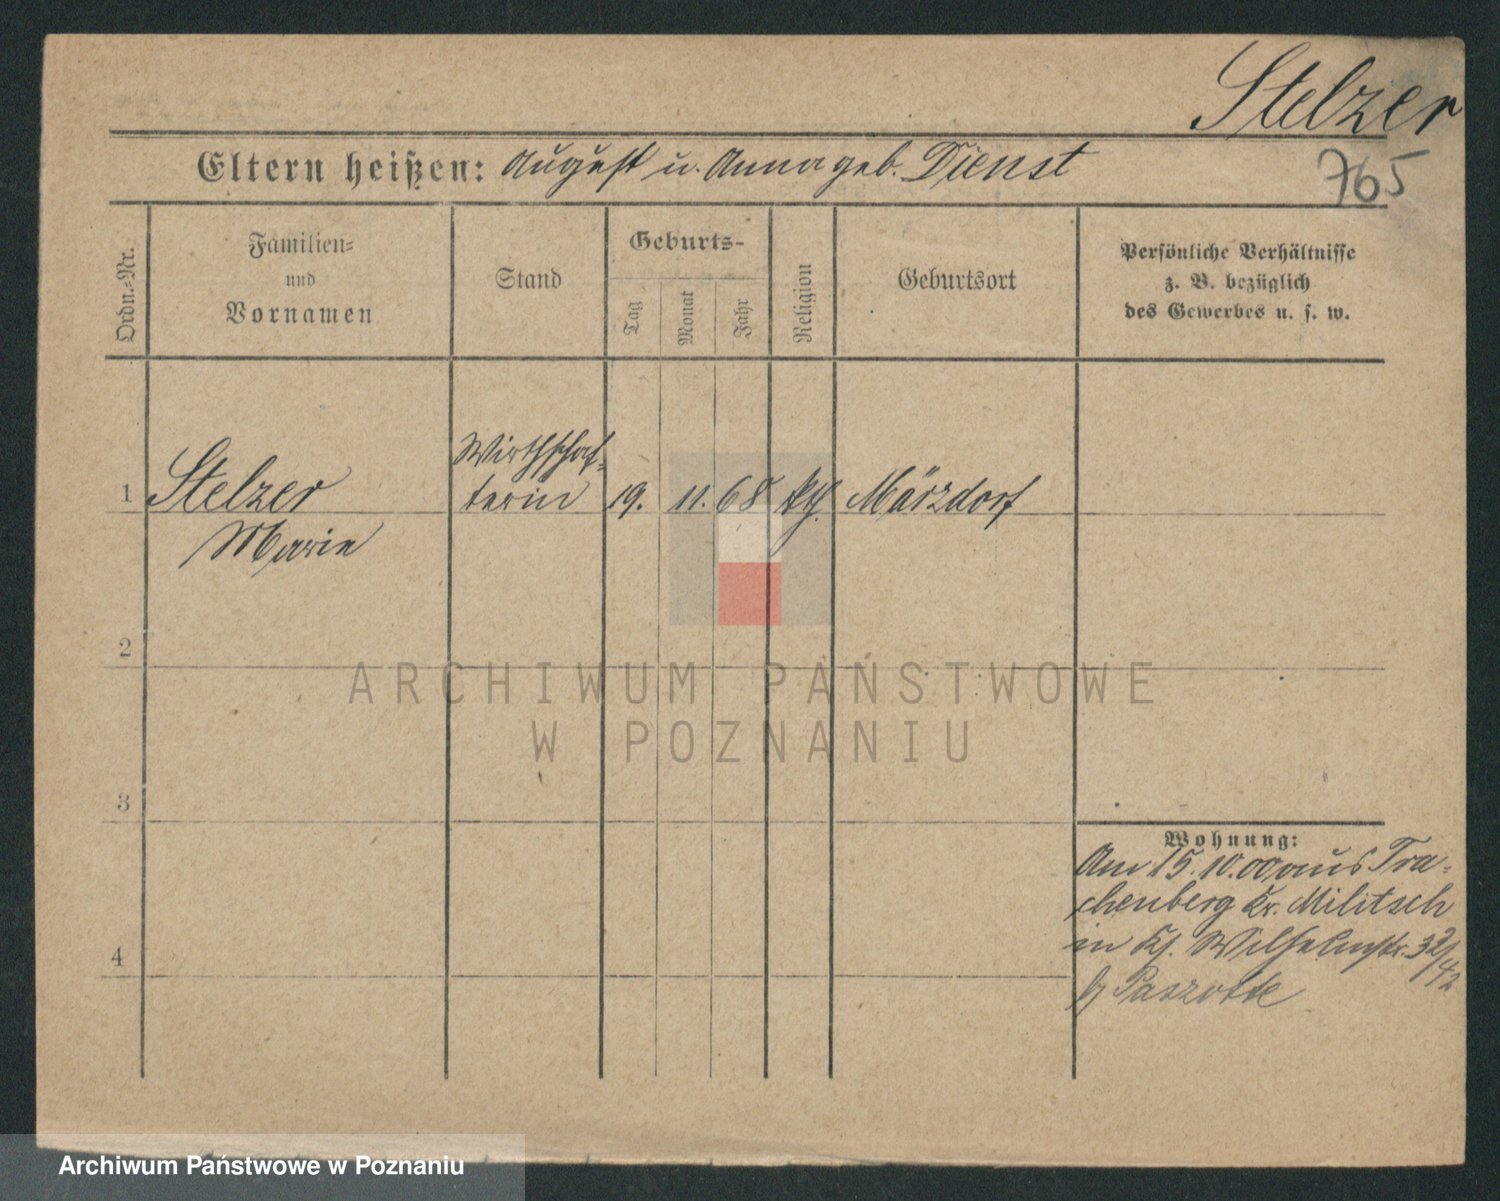 Stelzer
Eltern heißen: August u. Anna geb. Dienst
765
Ordn.-Nr.
Familien-
und
Vornamen
Stand
Geburts-
Tag
Monat
Jahr
Religion
Geburtsort
Persönliche Verhältnisse
z. B. bezüglich
des Gewerbes u. s. w.
1
Stelzer
Marie
Wirthschaf-
terin
19.
11.
68
kth.
Märzdorf
2
3
4
Wohnung:
Am 15.10.00 aus Tra-
chenberg Kr. Militsch
in Wilhelmstr. 32/42
b/ Paszotte
ARCHIWUM PAŃSTWOWE
W POZNANIU
Archiwum Państwowe w Poznaniu